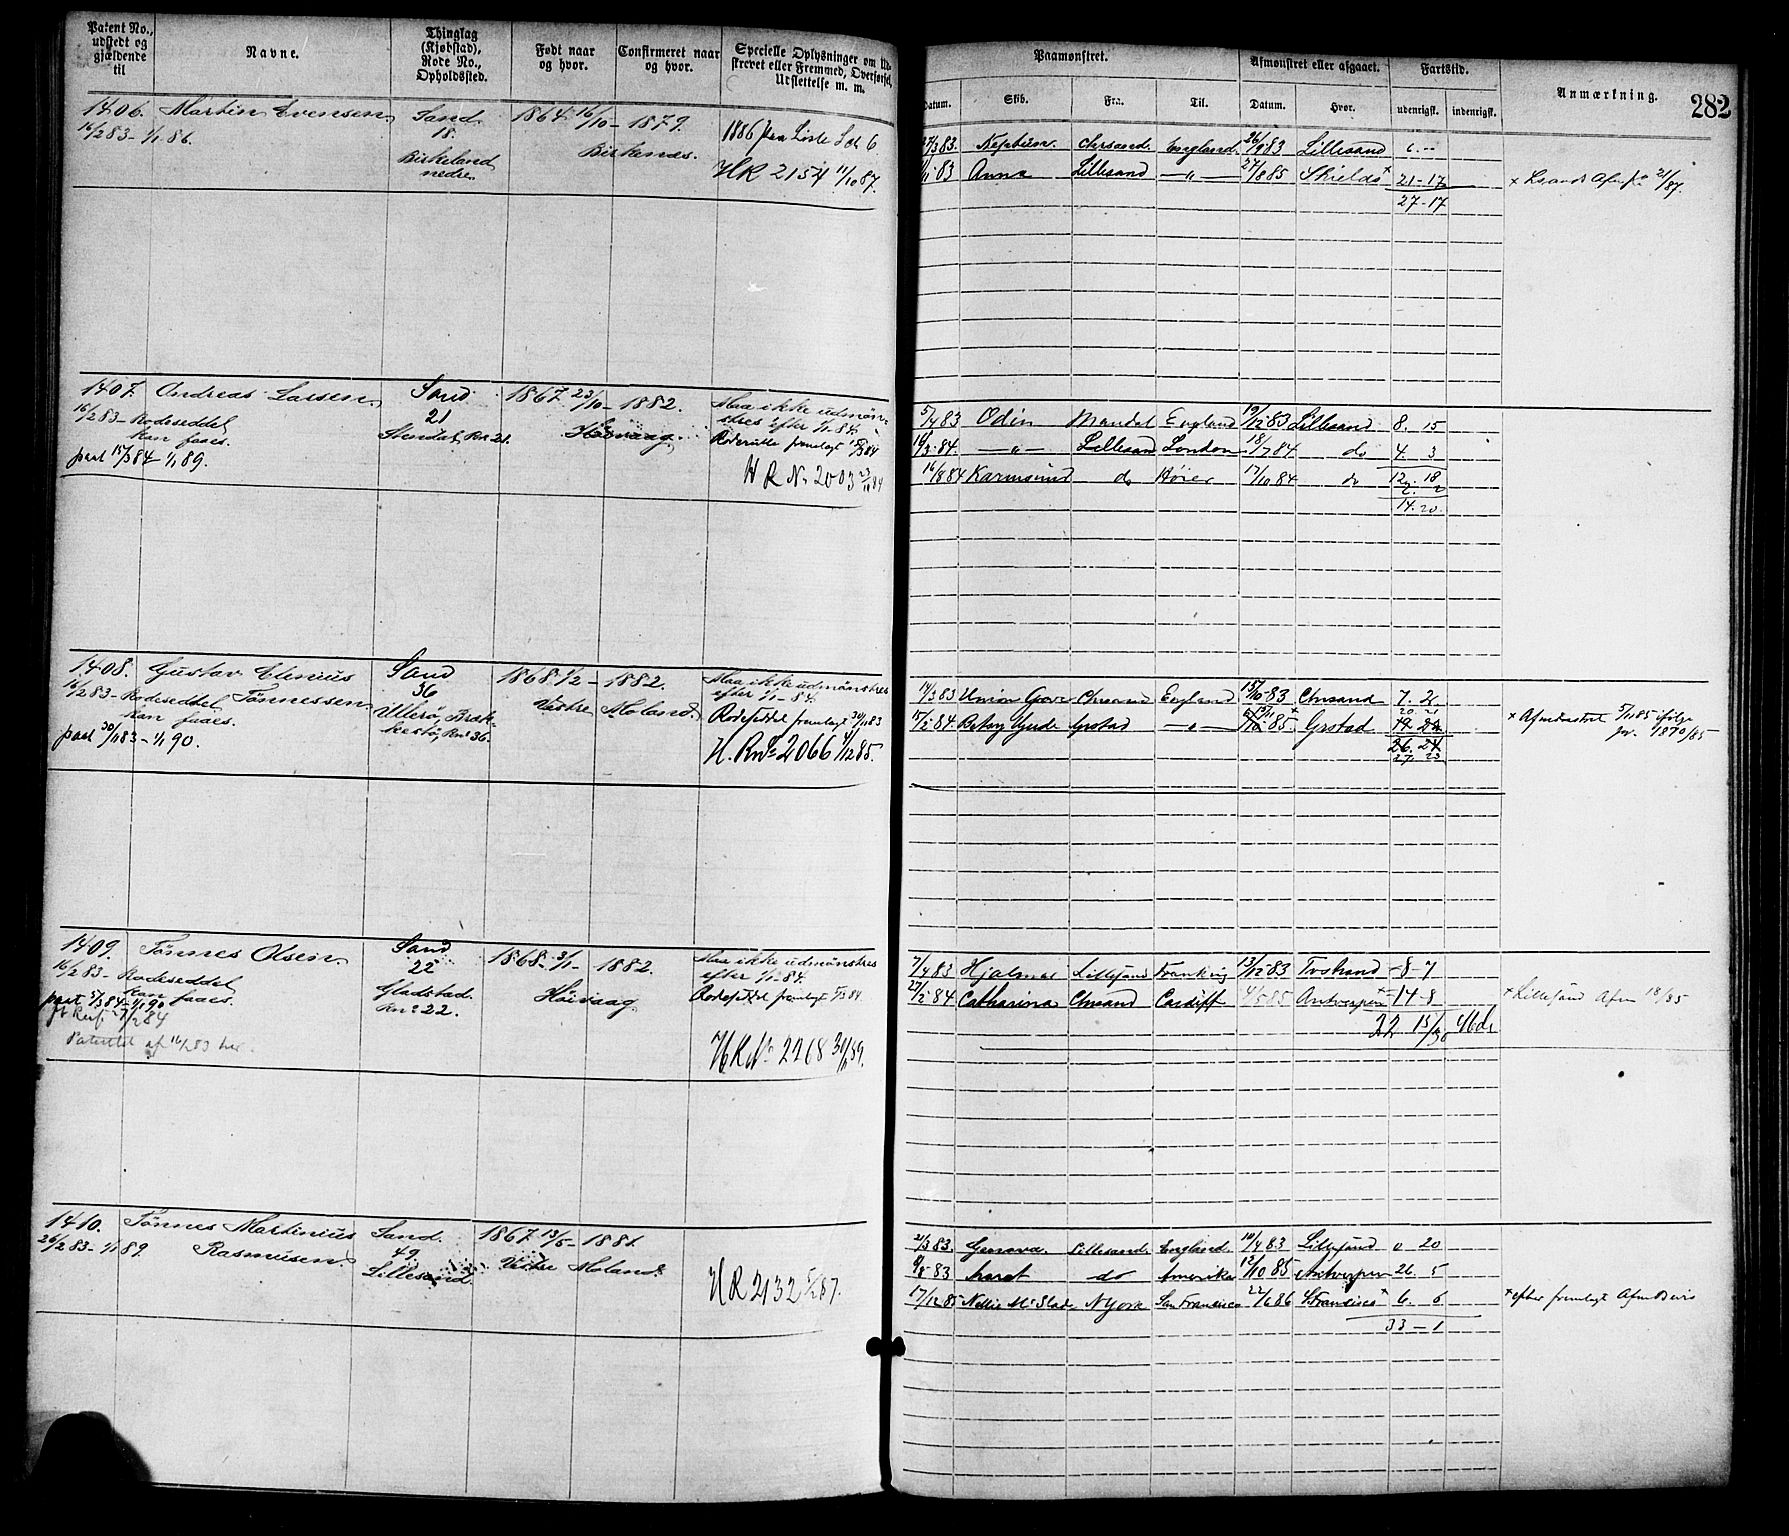 Patent No., udstedt og gjældende til
Navne.
Thinglag (Kjøbstad), Rode No., Opholdssted.
Født naar og hvor.
Confirmeret naar og hvor.
Specielle Oplysninger om
skrevet eller Fremmed, Overførsel, Udslettelse m. m.
Paamønstret.
Afmønstret eller afgaaet.
Fartstid.
Anmærkning.
282
Datum.
Skib.
Fra.
Til.
Datum.
Hvor.
udenrigsk.
indenrigsk.
1406. Martin Evensen Sand 1864 16/10 - 1879. 1886 fra Liste
16/2 83 - 1/1 86. 18 Birkenæs.
Birkeland HR 2154 11/10 87.
nedre
83. Neptun Chrsand. England. 26/9 83 Lillesand 6. --
83 Anna Lillesand -"- 27/8 85 Shields x 21-17
27-17
21/87.
1407. Andreas Larsen Sand 1867 23/10 - 1882. Maa ikke udmøn-
16/2 83 - Rodeseddel 21 Høivaag. stres efter 1/1 84.
kan faaes. Stendal, Rn 21. Roderulle fremlagt 15/3 84
pact 15/3 84 - 1/1 89. HR No 2003
5/4 83 Odin Mandal England 19/12 83 Lillesand 8. 15
84. -"- Lillesand London 18/7 84 do 4. 3
16/8 84 Karmsund do Høier 17/10 84 do 12. 18
2. 2
14. 20.
1408. Gustav Elenius Sand 1868 1/2 - 1882. Maa ikke udmønstres
16/2 83 - Rodeseddel Tönnessen. 36 Vestre Moland. efter 1/1 - 84.
kan faaes. Ullerø, Bræk- Rodeseddel fremlagt 30/11 83
pact 30/11 83 - 1/1 90. kestø, Rn 36. H. R No 2066 1/12 85.
14/3 83 Union Grove Chrsand England 15/10 83 Chrsand 7. 2.
15/2 84 -"- 85 Grstad
26. 24
27. 23
x Afmønstret 5/11 85 ifølge
1870/85
1409. Tönnes Olsen. Sand 1868 - 3/1 - 1882. Maa ikke udmønstres
16/2 83 - Rodeseddel 22 Høivaag efter 1/1 - 84.
kan faaes. Gladstad. Rodeseddel fremlagt
pact 5/3 84 - 1/1 90 Rn 22.
Patentet af 16/2 83 HR No 2268 30/11 89.
7/4 83 Hjalmar Lillesand 13/12 83 Tvstrand - 8 - 7
27/2 84 Catharina Chrsand Cardiff 4/5 85 Antwerpen x -14-8
22 15/30
x Lillesand Afm 18/85
1410. Tönnes Martinius Sand. 1867 13/5 - 1881.
26/2 83 - 1/1 89. Rasmusen. 49. Vestre Moland.
Lillesand HR 2132
21/3 83. Genova Lillesand. England. 10/4 83 Lillesand 0 20
83 do Amerika 12/10 85 Antwerpen 26. 5
17/12 85 Nellie Mc Slade N York San Francisco 22/6 86 SFrancisco x 6. 6
33 - 1
x efter fremlagt Afm Bevis